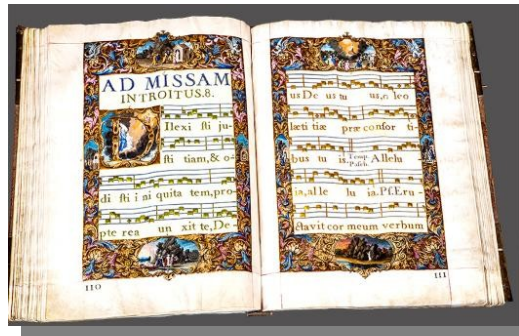 AD MISSAM
INTROITUS.8.
Ilexi sti ju-
sti tiam,& o-
di sti i ni quita tem,pro-
pte rea un xit te,De-
110
us De us tu us,o leo
læti tiæ præ confor ti-
bus tu is. Temp. Pasch. Allelu
ia,al le lu ia.Ps.Eru -
ctavit cor meum verbum
111